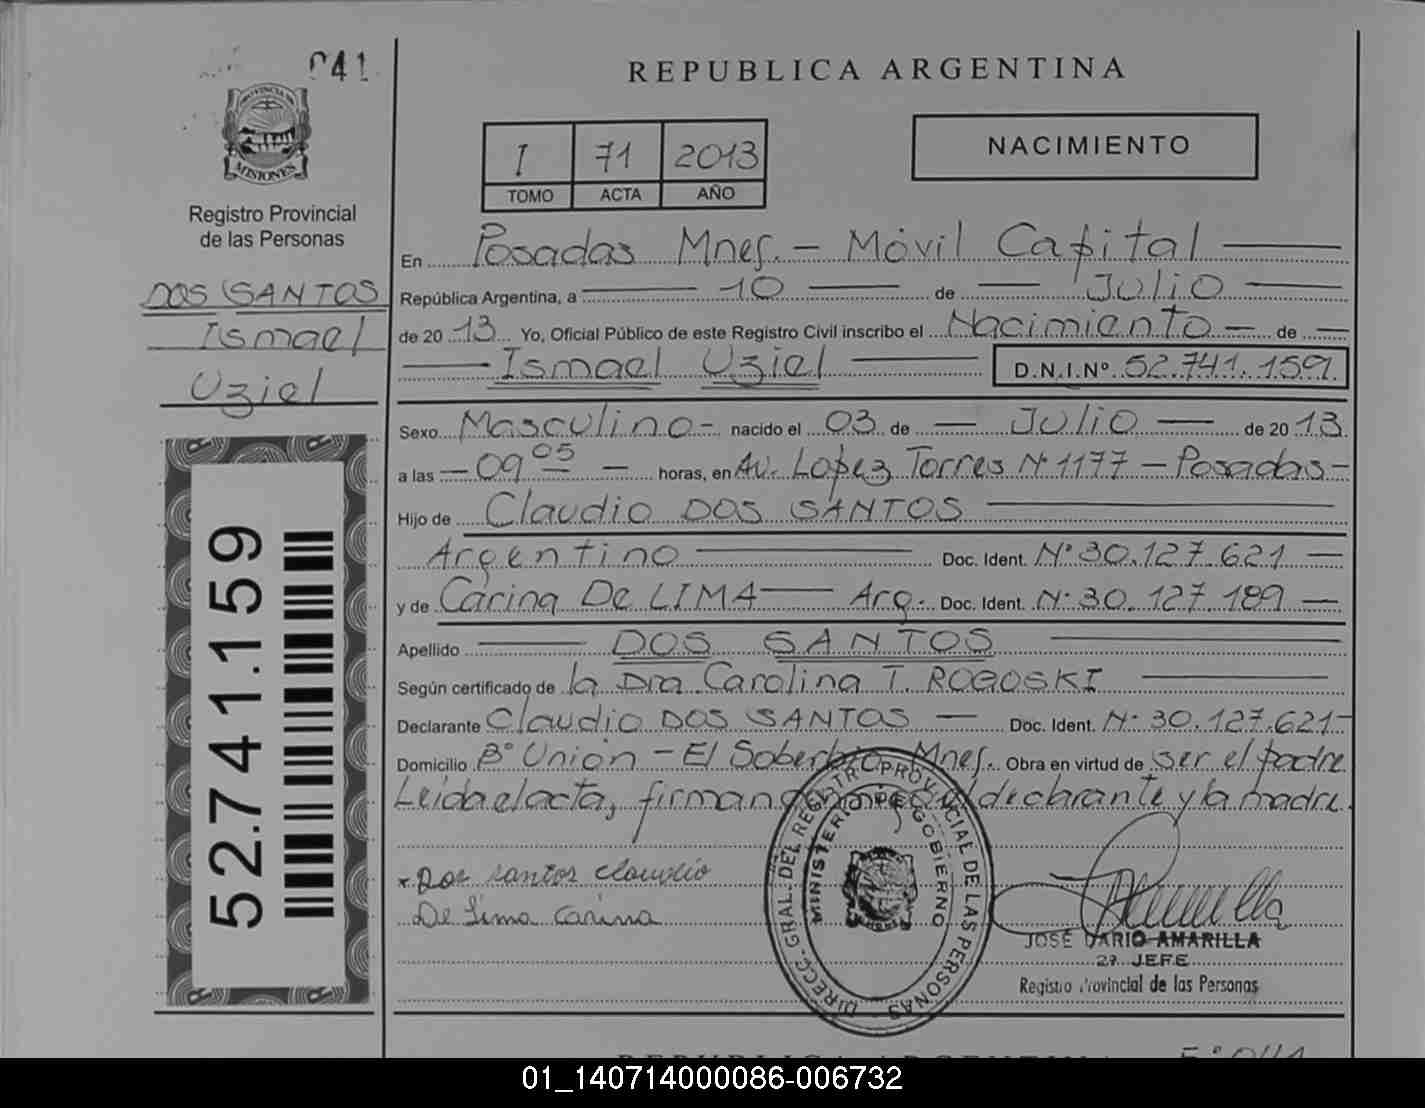 041
PROVINCIA DE
MISIONES
Registro Provincial
de las Personas
DOS SANTOS
Ismael
Uziel
52.741.159
REPUBLICA ARGENTINA
I 71 2013
TOMO ACTA AÑO
NACIMIENTO
En Posadas Mnes. - Móvil Capital
República Argentina, a 10 de Julio
de 2013 Yo, Oficial Público de este Registro Civil inscribo el Nacimiento - de
Ismael Uziel D.N.I.Nº 52.741.159
Sexo Masculino - nacido el 03 de Julio de 2013
a las 09 05 horas, en Av. López Torres Nº 1177 - Posadas -
Hijo de Claudio DOS SANTOS
Argentino Doc. Ident. Nº 30.127.621
y de Carina De LIMA Arg. Doc. Ident. Nº 30.127.189
Apellido DOS SANTOS
Según certificado de la Dra Carolina T. ROGOSKI
Declarante Claudio DOS SANTOS Doc. Ident. Nº 30.127.621
Domicilio Bº Unión - El Soberbio Mnes. Obra en virtud de ser el padre
Leída el acta, firman declarante y la madre.
Dos santos claudio
De Lima Carina
DIRECC. GRAL. DEL REGISTRO PROVINCIAL DE LAS PERSONAS
MINISTERIO DE GOBIERNO
JOSÉ DARIO AMARILLA
JEFE
Registro Provincial de las Personas
REPUBLICA ARGENTINA
01_140714000086-006732